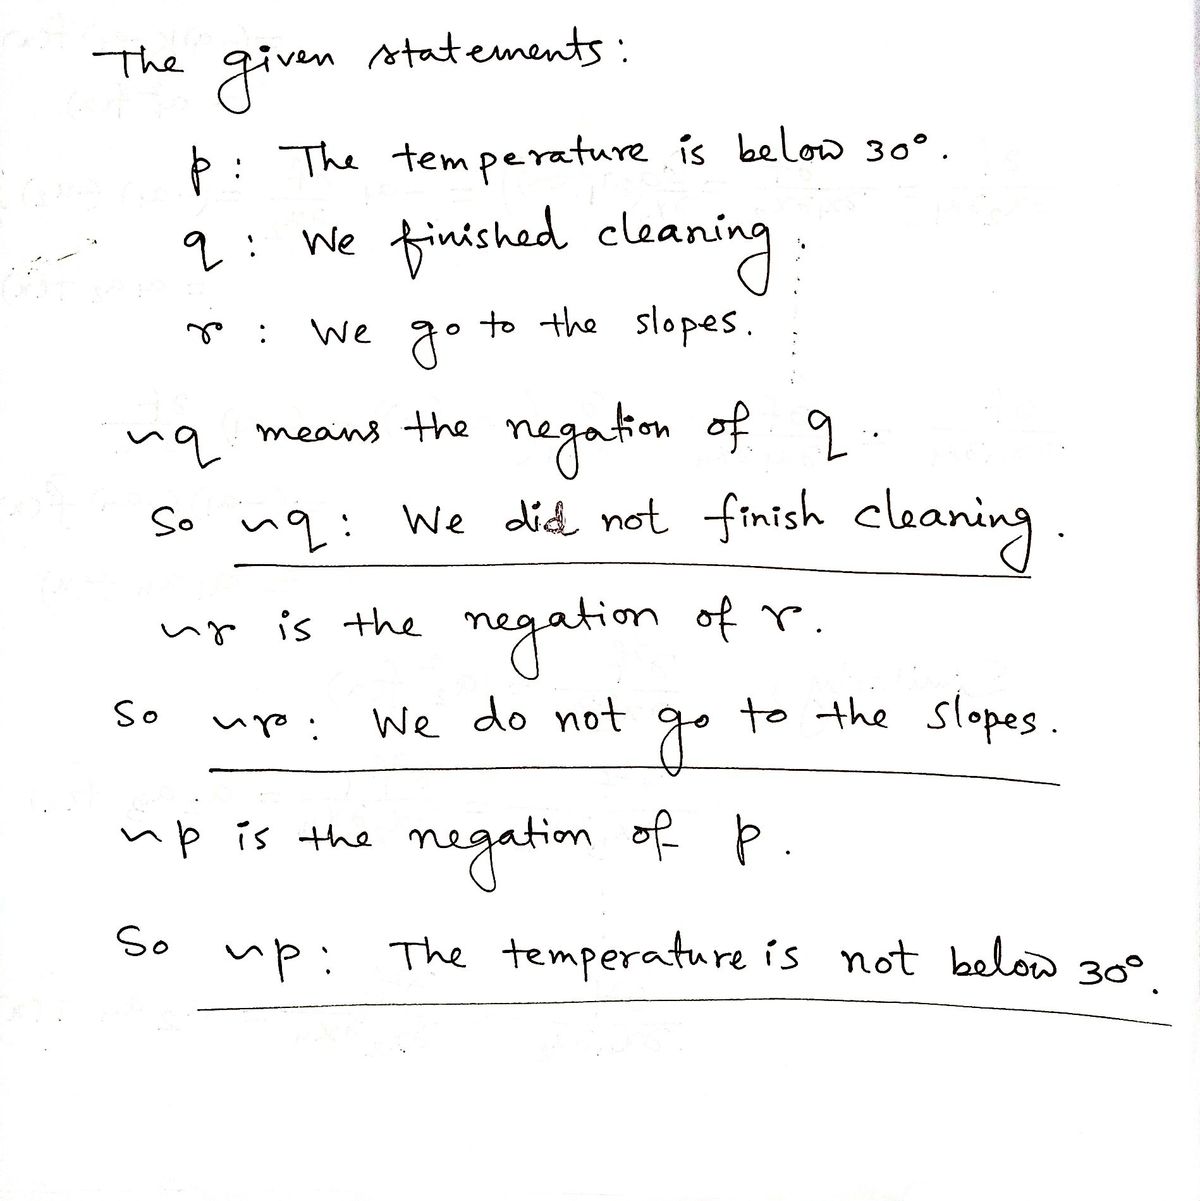 The given statements:
p: The temperature is below 30°.
q: We finished cleaning.
r: We go to the slopes.
~q means the negation of q.
So ~q: We did not finish cleaning.
~r is the negation of r.
So ~r: We do not go to the slopes.
~p is the negation of p.
So ~p: The temperature is not below 30°.